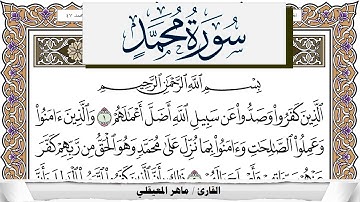 سُورَةُ مُحَمَّدٍ
بِسْمِ اللَّهِ الرَّحْمَٰنِ الرَّحِيمِ
الَّذِينَ كَفَرُوا وَصَدُّوا عَن سَبِيلِ اللَّهِ أَضَلَّ أَعْمَالَهُمْ ١ وَالَّذِينَ ءَامَنُوا
وَعَمِلُوا الصَّالِحَاتِ وَءَامَنُوا بِمَا نُزِّلَ عَلَىٰ مُحَمَّدٍ وَهُوَ الْحَقُّ مِن رَّبِّهِمْ كَفَّرَ
القارئ / ماهر المعيقلي